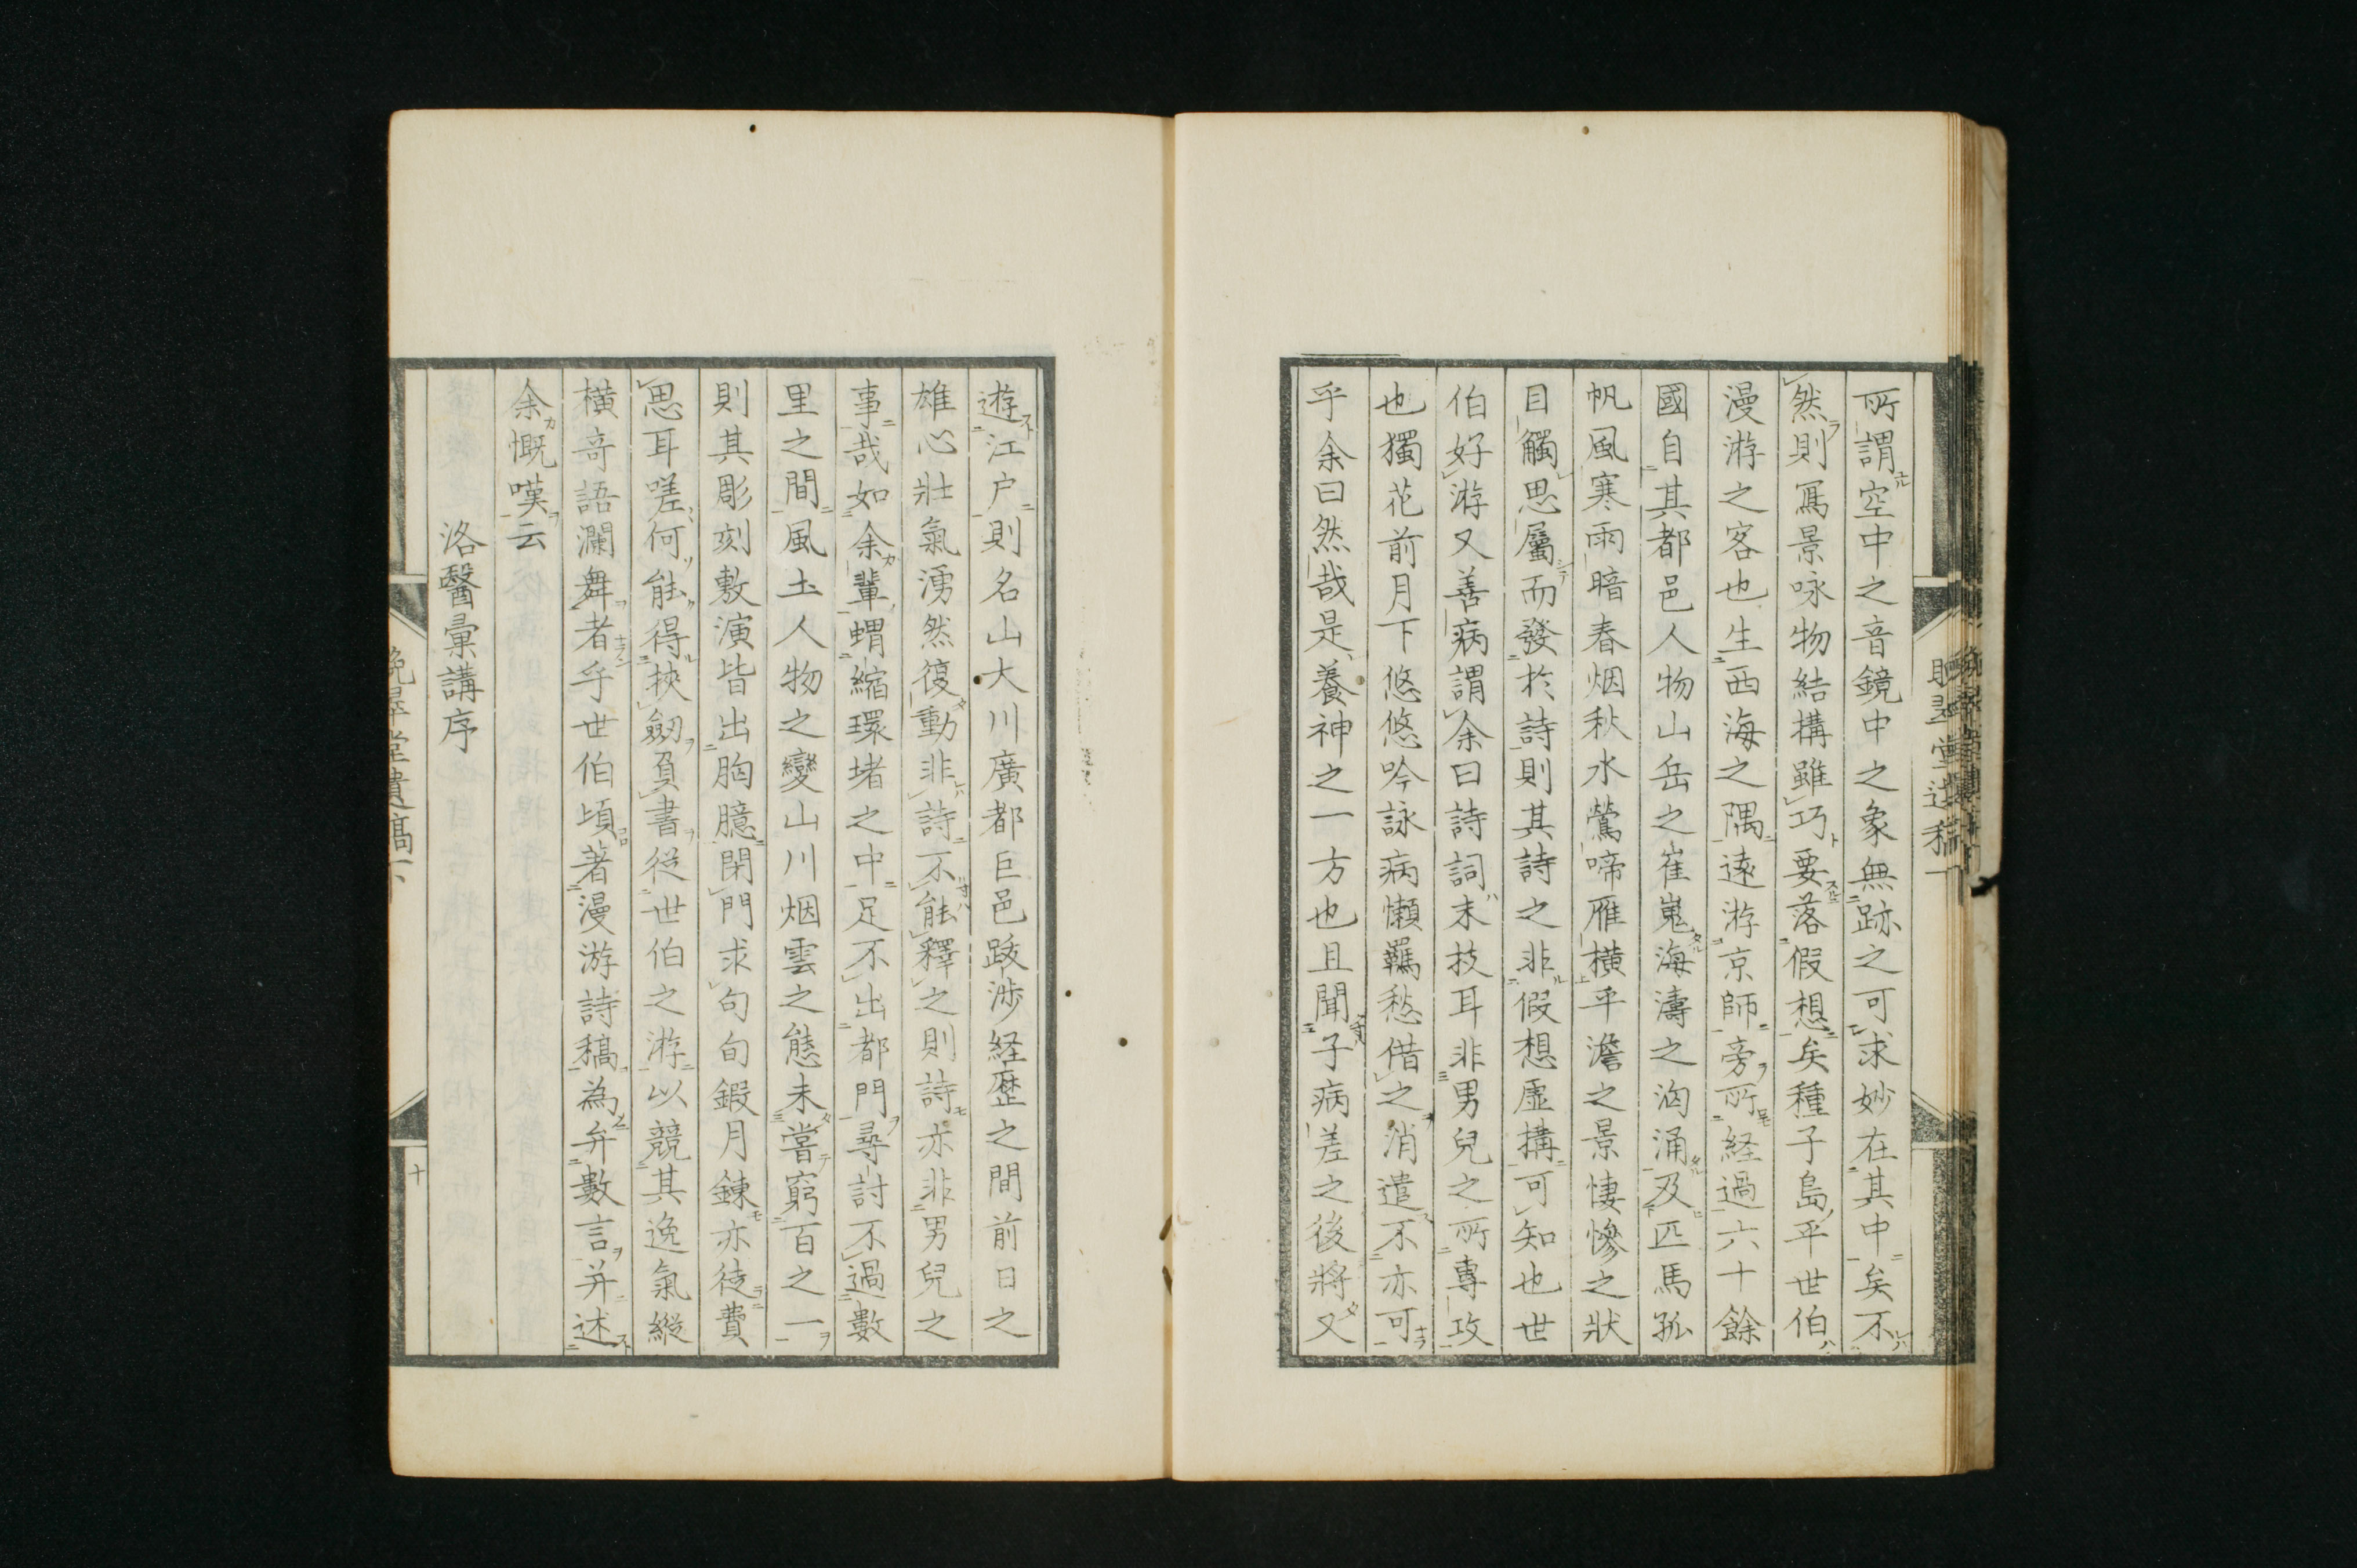 所謂空中之音鏡中之象無跡之可求妙在其中矣不
然則寫景咏物結構雖巧要落假想矣種子島平世伯
漫游之客也生西海之隅遠游京師旁所経過六十餘
國自其都邑人物山岳之崔嵬海濤之洶涌及匹馬孤
帆風寒雨暗春烟秋水鶯啼雁橫平澹之景悽慘之狀
目觸思屬而發於詩則其詩之非假想虛構可知也世
伯好游又善病謂余曰詩詞末技耳非男兒之所專攻
也獨花前月下悠悠吟詠病懶羈愁借之消遣不亦可
乎余曰然哉是養神之一方也且聞子病差之後將又
遊江户則名山大川廣都巨邑跋涉経歴之間前日之
雄心壯氣湧然復動非詩不能釋之則詩亦非男兒之
事哉如余輩蝟縮環堵之中足不出都門尋討不過數
里之間風土人物之變山川烟雲之態未嘗窮百之一
則其彫刻敷演皆出胸臆閉門求句旬鍜月鍊亦徒費
思耳嗟何能得挾劔負書從世伯之游以競其逸氣縱
橫奇語瀾舞者乎世伯頃著漫游詩稿為弁數言并述
余慨嘆云
洛醫彙講序
晚翠堂遺稿下
十